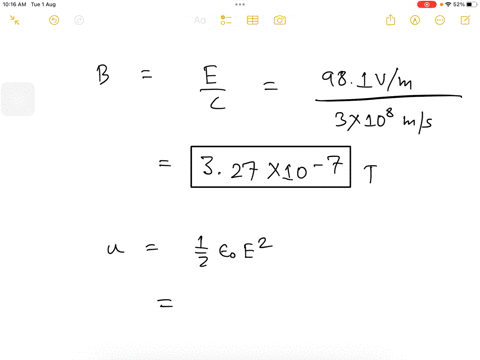 10:16 AM Tue 1 Aug
52%
Aa
B = E/C = 98.1 V/m / 3×10⁸ m/s
= 3.27 ×10⁻⁷ T
u = 1/2 ϵ₀ E²
=